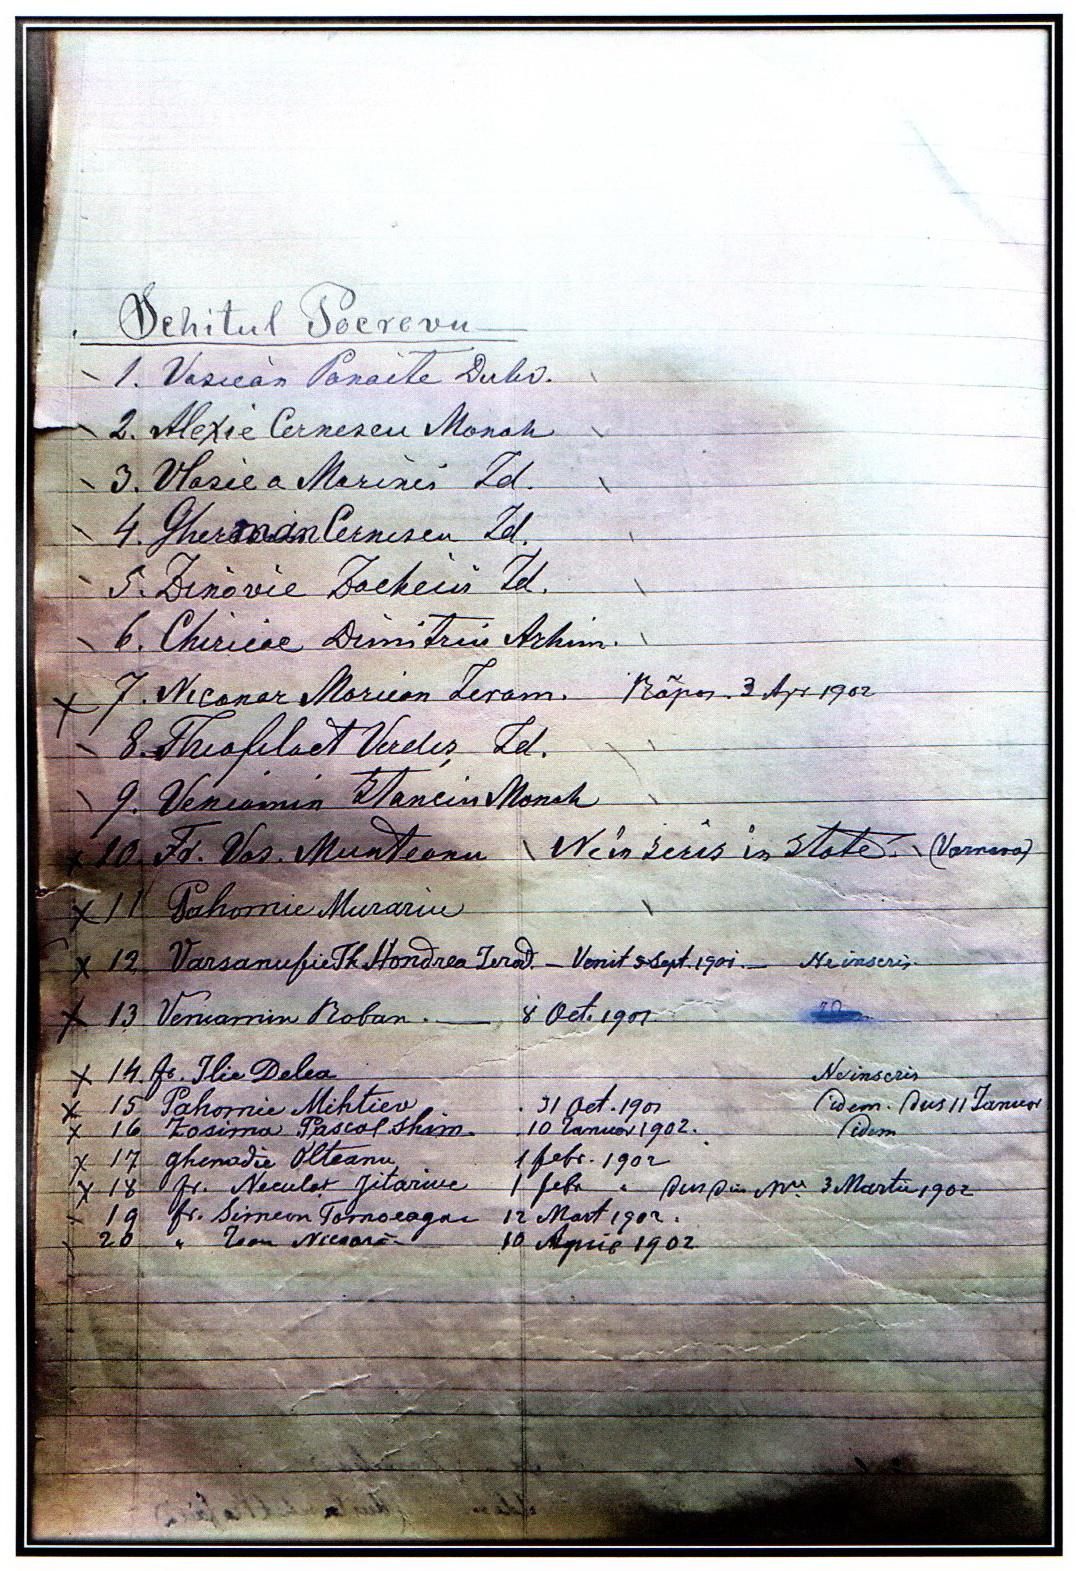 Schitul Pocrovu
1. Vasian Panaite Duhv.
2. Alexie Cernescu Monah
3. Vlasie a Marinei Id.
4. Gherman Cernescu Id.
5. Zinovie Zacheiu Id.
6. Chiriac Dimitriu Arhim.
7. Nicanor Marian Ieram. Răpos. 3 Apr 1902
8. Theofilact Verdeș Id.
9. Veniamin Stanciu Monah
10. Fr. Vas. Munteanu Neînscris în state. (Varnava)
11 Pahomie Murariu
12 Varsanufie Th. Hondrea Ierod. – Venit 5 Sept. 1901. – Neinscris
13 Veniamin Roban. — 8 Oct. 1901
14. fr. Ilie Delea Neinscris
15 Pahomie Mihtiev 31 Oct. 1901 idem. Dus 11 Ianuar
16 Zosima Pascal shim. 10 Ianuar 1902. idem
17 Ghenadie Olteanu 1 febr. 1902
18 fr. Neculai Jitariuc 1 febr " Dus din 3 Martie 1902
19 fr. Simeon 12 Mart 1902.
20 " Ioan 10 Aprie 1902